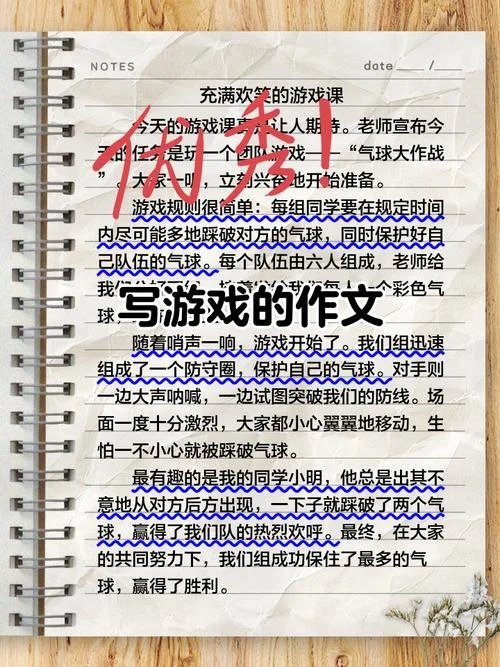 NOTES
date ____ / ____
充满欢笑的游戏课
今天的游戏课真让人期待。老师宣布今
天的任务是玩一个团队游戏——“气球大作战
”。大家一听，立刻兴奋地开始准备。
优秀!
游戏规则很简单：每组同学要在规定时间
内尽可能多地踩破对方的气球，同时保护好自
己队伍的气球。每个队伍由六人组成，老师给
个彩色气
球，
写游戏的作文
随着哨声一响，游戏开始了。我们组迅速
组成了一个防守圈，保护自己的气球。对手则
一边大声呐喊，一边试图突破我们的防线。场
面一度十分激烈，大家都小心翼翼地移动，生
怕一不小心就被踩破气球。
最有趣的是我的同学小明，他总是出其不
意地从对方后方出现，一下子就踩破了两个气
球，赢得了我们队的热烈欢呼。最终，在大家
的共同努力下，我们组成功保住了最多的气
球，赢得了胜利。